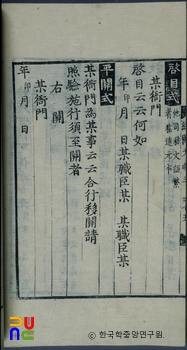 啓目式
某衙門
啓目云云何如
年印月 日某職臣某 某職臣某
平關式
某衙門爲某事云云合行移關請
照驗施行須至關者
右 關
某衙門
年印月 日
© 한국학중앙연구원